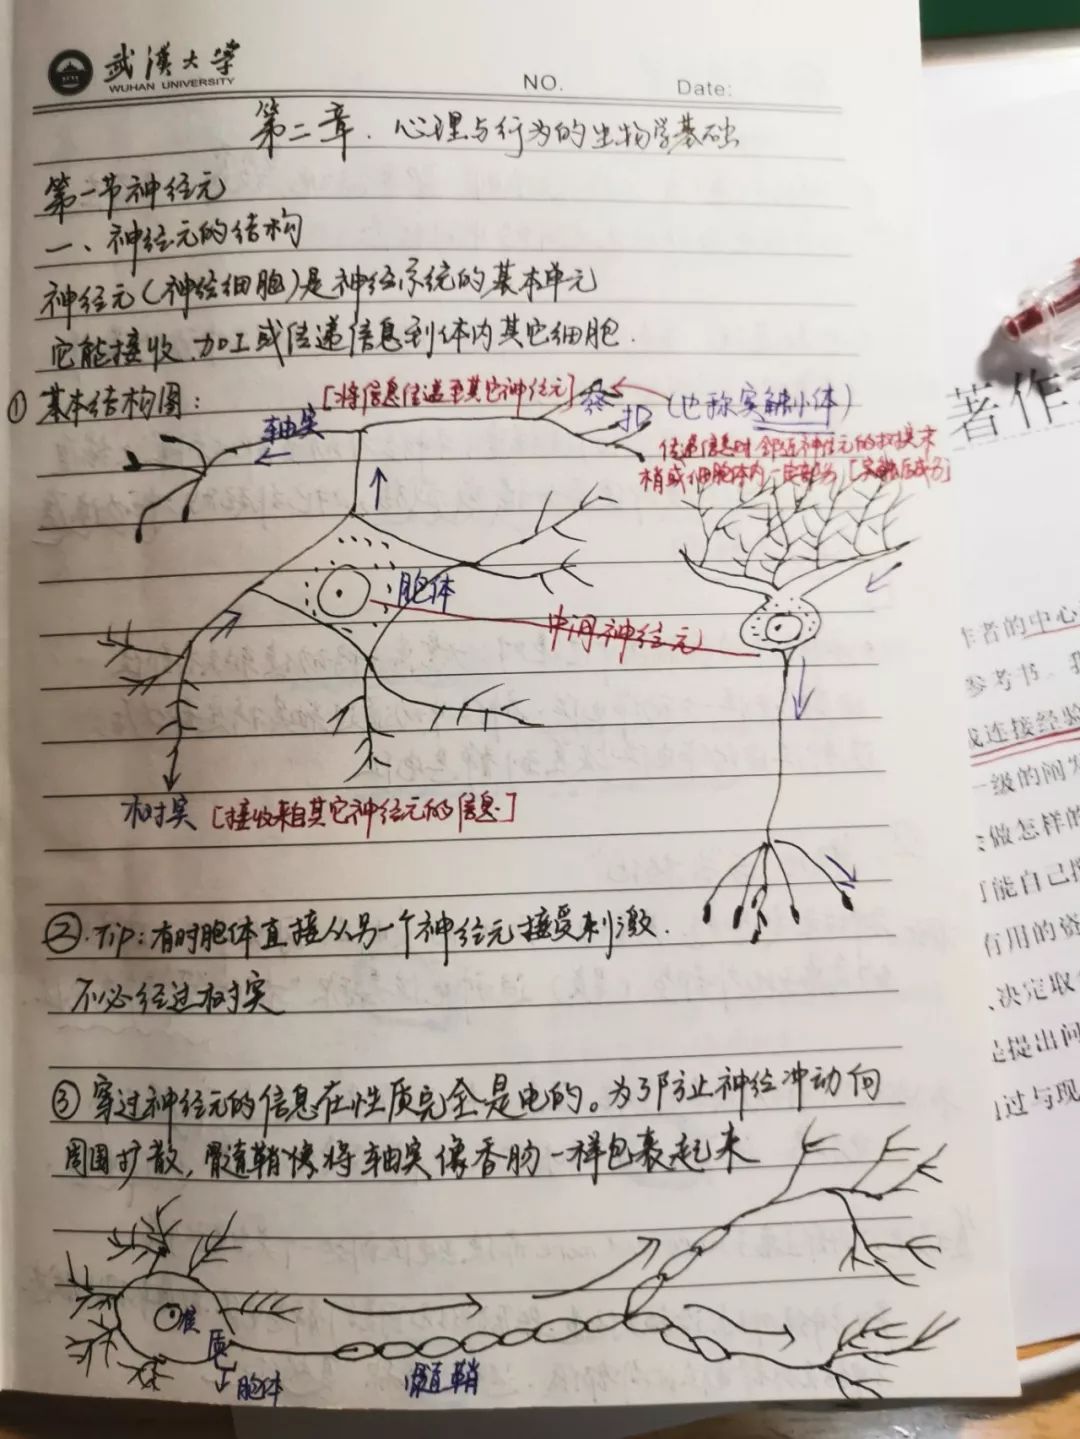 武漢大学
WUHAN UNIVERSITY
NO.
Date:
第二章.心理与行为的生物学基础
第一节神经元
一、神经元的结构
神经元(神经细胞)是神经系统的基本单元
它能接收、加工或传递信息到体内其它细胞.
① 基本结构图:
[将信息传递至其它神经元]
轴突
终扣(也称突触小体)
传递信息时邻近神经元的树突末
梢或细胞体内一定部分[突触后成分]
胞体
中间神经元
树突[接收来自其它神经元的信息]
②.Tip:有时胞体直接从另一个神经元接受刺激.
不必经过树突
③ 穿过神经元的信息在性质完全是电的。为了防止神经冲动向
周围扩散,髓鞘将轴突像香肠一样包裹起来
核
质
胞体
髓鞘
著作
作者的中心
参考书、我
或连接经验
一级的阐发
做怎样的
能自己
有用的资
决定取
是提出问
过与现